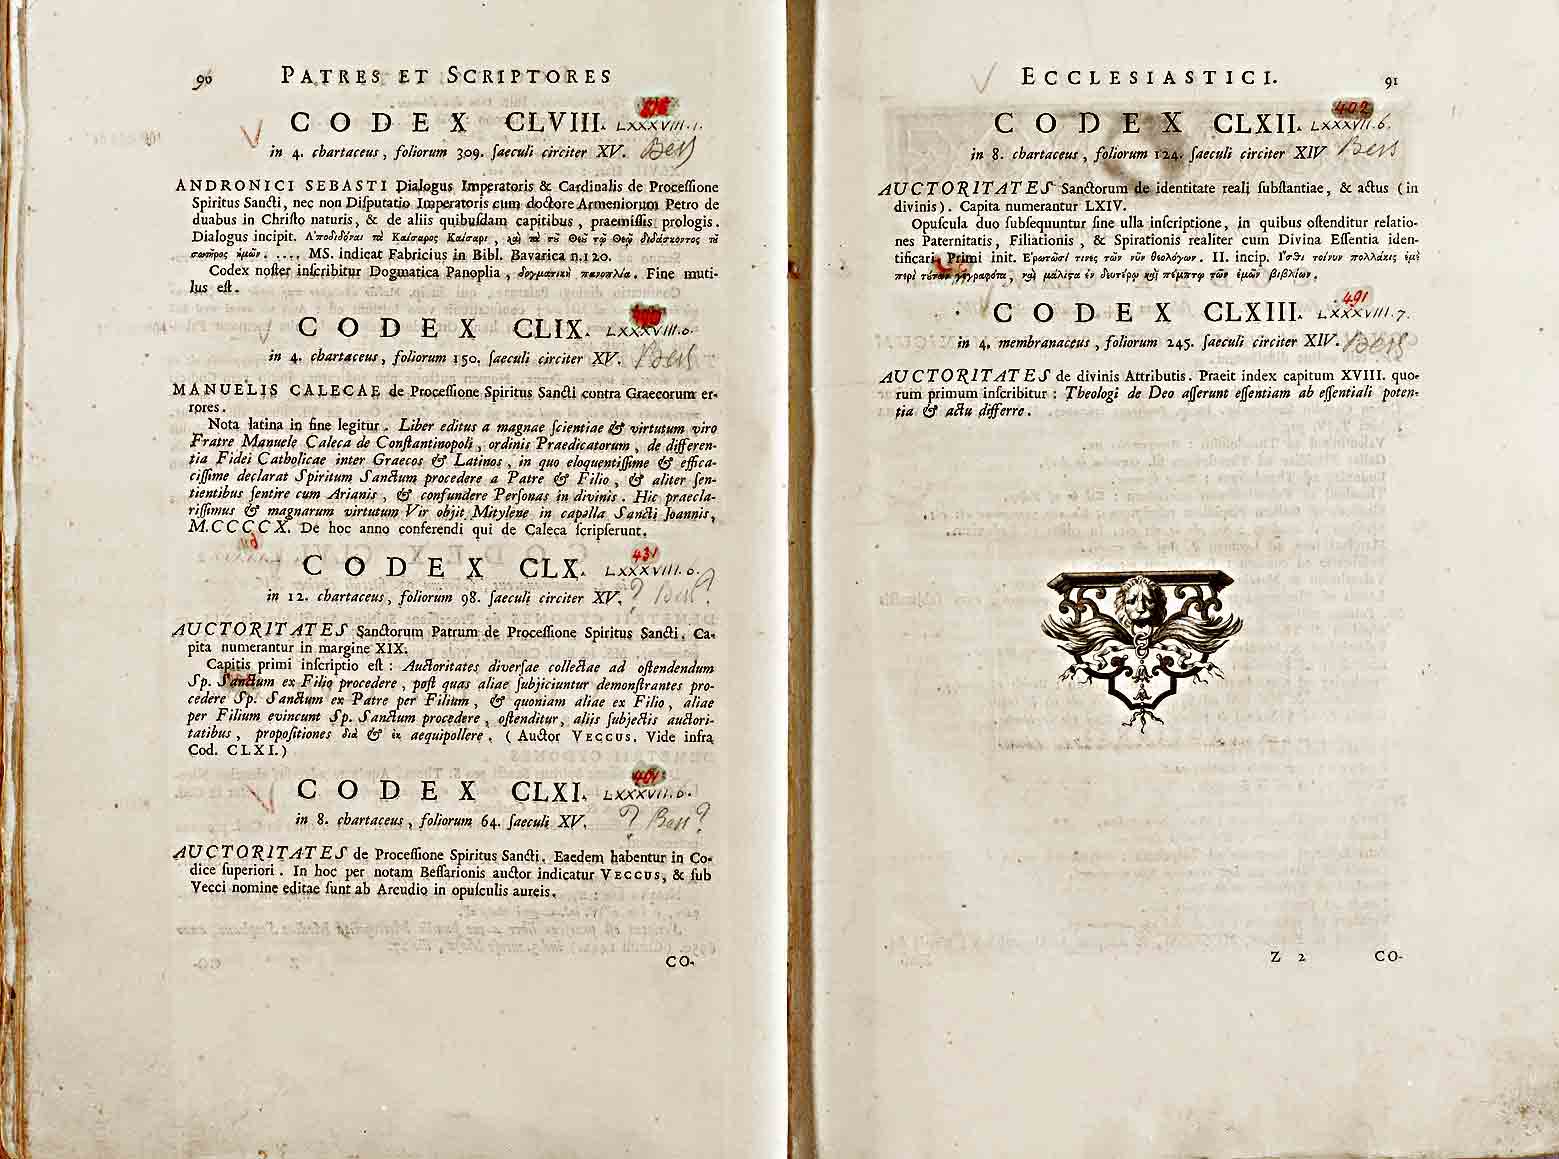 90 PATRES ET SCRIPTORES
CODEX CLVIII. LXXXVIII.1.
in 4. chartaceus, foliorum 309. ſaeculi circiter XV. Bess
ANDRONICI SEBASTI Dialogus Imperatoris & Cardinalis de Proceſſione
Spiritus Sancti, nec non Diſputatio Imperatoris cum doctore Armeniorum Petro de
duabus in Chriſto naturis, & de aliis quibuſdam capitibus, praemiſſis prologis.
Dialogus incipit. Ἀποδιδόναι τὰ Καίσαρος Καίσαρι, καὶ τὰ τῦ Θεῦ τῷ Θεῷ διδάσκοντος τῦ
σωτῆρος ἡμῶν. .... MS. indicat Fabricius in Bibl. Bavarica n.120.
Codex noſter inſcribitur Dogmatica Panoplia, δογματικὴ πανοπλία. Fine muti-
lus eſt.
CODEX CLIX. LXXXVIII.0.
in 4. chartaceus, foliorum 150. ſaeculi circiter XV. Bess
MANUELIS CALECAE de Proceſſione Spiritus Sancti contra Graecorum er-
rores.
Nota latina in fine legitur. Liber editus a magnae ſcientiae & virtutum viro
Fratre Manuele Caleca de Conſtantinopoli, ordinis Praedicatorum, de differen-
tia Fidei Catholicae inter Graecos & Latinos, in quo eloquentiſſime & effica-
ciſſime declarat Spiritum Sanctum procedere a Patre & Filio, & aliter ſen-
tientibus ſentire cum Arianis, & confundere Perſonas in divinis. Hic praecla-
riſſimus & magnarum virtutum Vir objit Mitylene in capella Sancti Joannis,
M.CCCCX. De hoc anno conferendi qui de Caleca ſcripſerunt.
431
CODEX CLX. LXXXVIII.0.
in 12. chartaceus, foliorum 98. ſaeculi circiter XV. ? Bess?
AUCTORITATES Sanctorum Patrum de Proceſſione Spiritus Sancti. Ca-
pita numerantur in margine XIX.
Capitis primi inſcriptio eſt: Auctoritates diverſae collectae ad oſtendendum
Sp. Sanctum ex Filio procedere, poſt quas aliae ſubjiciuntur demonſtrantes pro-
cedere Sp. Sanctum ex Patre per Filium, & quoniam aliae ex Filio, aliae
per Filium evincunt Sp. Sanctum procedere, oſtenditur, aliis ſubjectis auctori-
tatibus, propoſitiones διὰ & ἐκ aequipollere. (Auctor VECCUS. Vide infra
Cod. CLXI.)
401
CODEX CLXI. LXXXVII.6.
in 8. chartaceus, foliorum 64. ſaeculi XV. ? Bess?
AUCTORITATES de Proceſſione Spiritus Sancti. Eaedem habentur in Co-
dice ſuperiori. In hoc per notam Beſſarionis auctor indicatur VECCUS, & ſub
Vecci nomine editae ſunt ab Arcudio in opuſculis aureis.
CO-
ECCLESIASTICI. 91
402
CODEX CLXII. LXXXVII.6.
in 8. chartaceus, foliorum 124. ſaeculi circiter XIV Bess
AUCTORITATES Sanctorum de identitate reali ſubſtantiae, & actus (in
divinis). Capita numerantur LXIV.
Opuſcula duo ſubſequuntur ſine ulla inſcriptione, in quibus oſtenditur relatio-
nes Paternitatis, Filiationis, & Spirationis realiter cum Divina Eſſentia iden-
tificari. Primi init. Ἐρωτῶσί τινες τῶν νῦν θεολόγων. II. incip. Ἴσθι τοίνυν πολλάκις ἐμὲ
περὶ τύτων γεγραφότα, καὶ μάλιστα ἐν δευτέρῳ καὶ πέμπτῳ τῶν ἐμῶν βιβλίων.
491
CODEX CLXIII. LXXXVIII.7.
in 4. membranaceus, foliorum 245. ſaeculi circiter XIV. Bess
AUCTORITATES de divinis Attributis. Praeit index capitum XVIII. quo-
rum primum inſcribitur: Theologi de Deo aſſerunt eſſentiam ab eſſentiali poten-
tia & actu differre.
Z 2 CO-